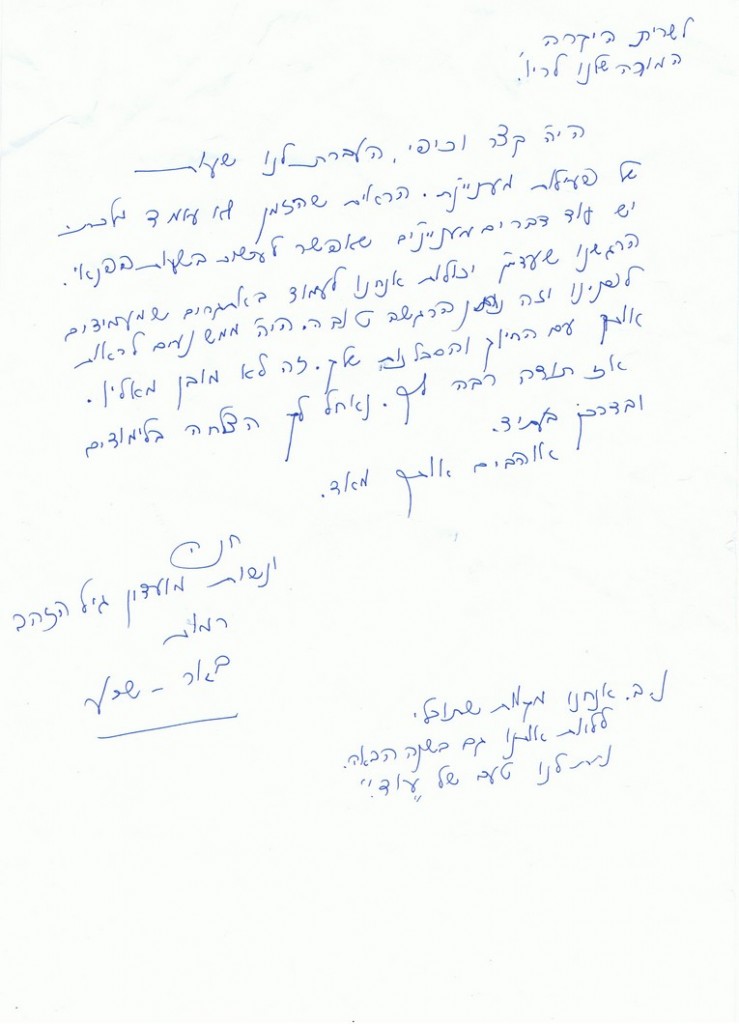 לשרית היקרה
המורה שלנו לריו'.
היה קצר וכיפי, העברת לנו שעות
של פעילות מעניינת. הראית שהזמן לא עומד מלכת.
יש עוד דברים מעניינים שאפשר לעשות בשעות הפנאי.
הרגשנו שעדיין יכולות אנחנו לעמוד באתגרים שמעמידים
לפנינו וזה נותן הרגשה טובה. היה ממש נעים לראות
אותך עם החיוך והסבלנות שלך. זה לא מובן מאליו.
אז תודה רבה לך. נאחל לך הצלחה בלימודים
ובדרכך בעתיד.
אוהבים אותך מאוד.
ונשות מועדון גיל הזהב
רמות
באר - שבע
נ.ב. אנחנו מקוות שתוכלי
ללוות אותנו גם בשנה הבאה.
נתת לנו טעם של "עוד"